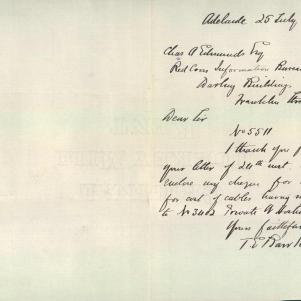 Adelaide 25 July
Chas A Edmunds Esq
Red Cross Information Bureau
Darling Building,
Franklin
Dear Sir
No 5511
I thank you f
your letter of 24th inst
enclose my cheque for
for cost of cables having
to No 3402 Private W
Yours faithful
T E Barr